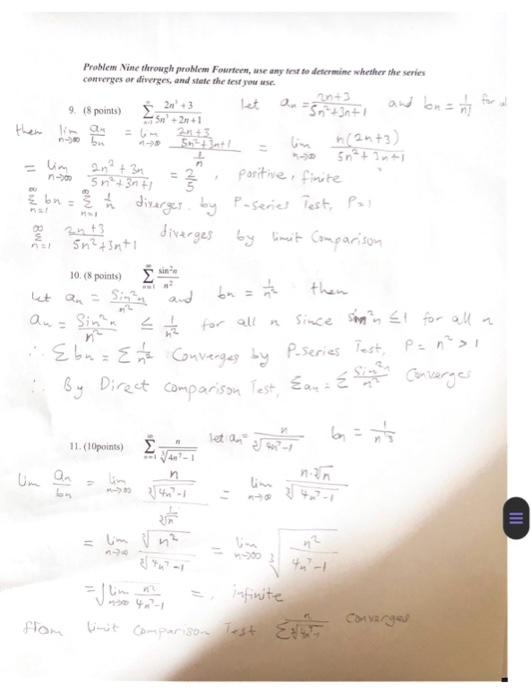 Problem Nine through problem Fourteen, use any test to determine whether the series
converges or diverges, and state the test you use.
9. (8 points) ∞ Σ n=1 2n³+3 / 5n³+2n+1 let an = 2n+3 / 5n²+3n+1 and bn = 1/n for all
then lim n→∞ an/bn = lim n→∞ 2n+3 / 5n²+3n+1 / 1/n = lim n→∞ n(2n+3) / 5n²+3n+1
= lim n→∞ 2n²+3n / 5n²+3n+1 = 2/5, positive, finite
∞ Σ n=1 bn = ∞ Σ n=1 1/n diverges. by P-series Test, P=1
∞ Σ n=1 2n+3 / 5n²+3n+1 diverges by limit Comparison
10. (8 points) ∞ Σ n=1 sin²n / n²
Let an = Sin²n / n² and bn = 1/n² then
an = Sin²n / n² ≤ 1/n² for all n Since sin²n ≤ 1 for all n
∴ Σbn = Σ 1/n² Converges by P-series Test, P = n² > 1
∴ By Direct comparison Test, Σan = Σ Sin²n / n² Converges
11. (10points) ∞ Σ n=1 n / ∛4n⁷−1 let an = n / ∛4n⁷−1 bn =
Lim an/bn = lim n→∞ n / ∛4n⁷−1 / = lim n→∞ n·∛n / ∛4n⁷−1
= lim n→∞ ∛n² / ∛4n⁷−1 = lim n→∞ ∛ n² / 4n⁷−1
= √ lim n→∞ n² / 4n⁷−1 =, infinite
from limit comparison Test Σ converges